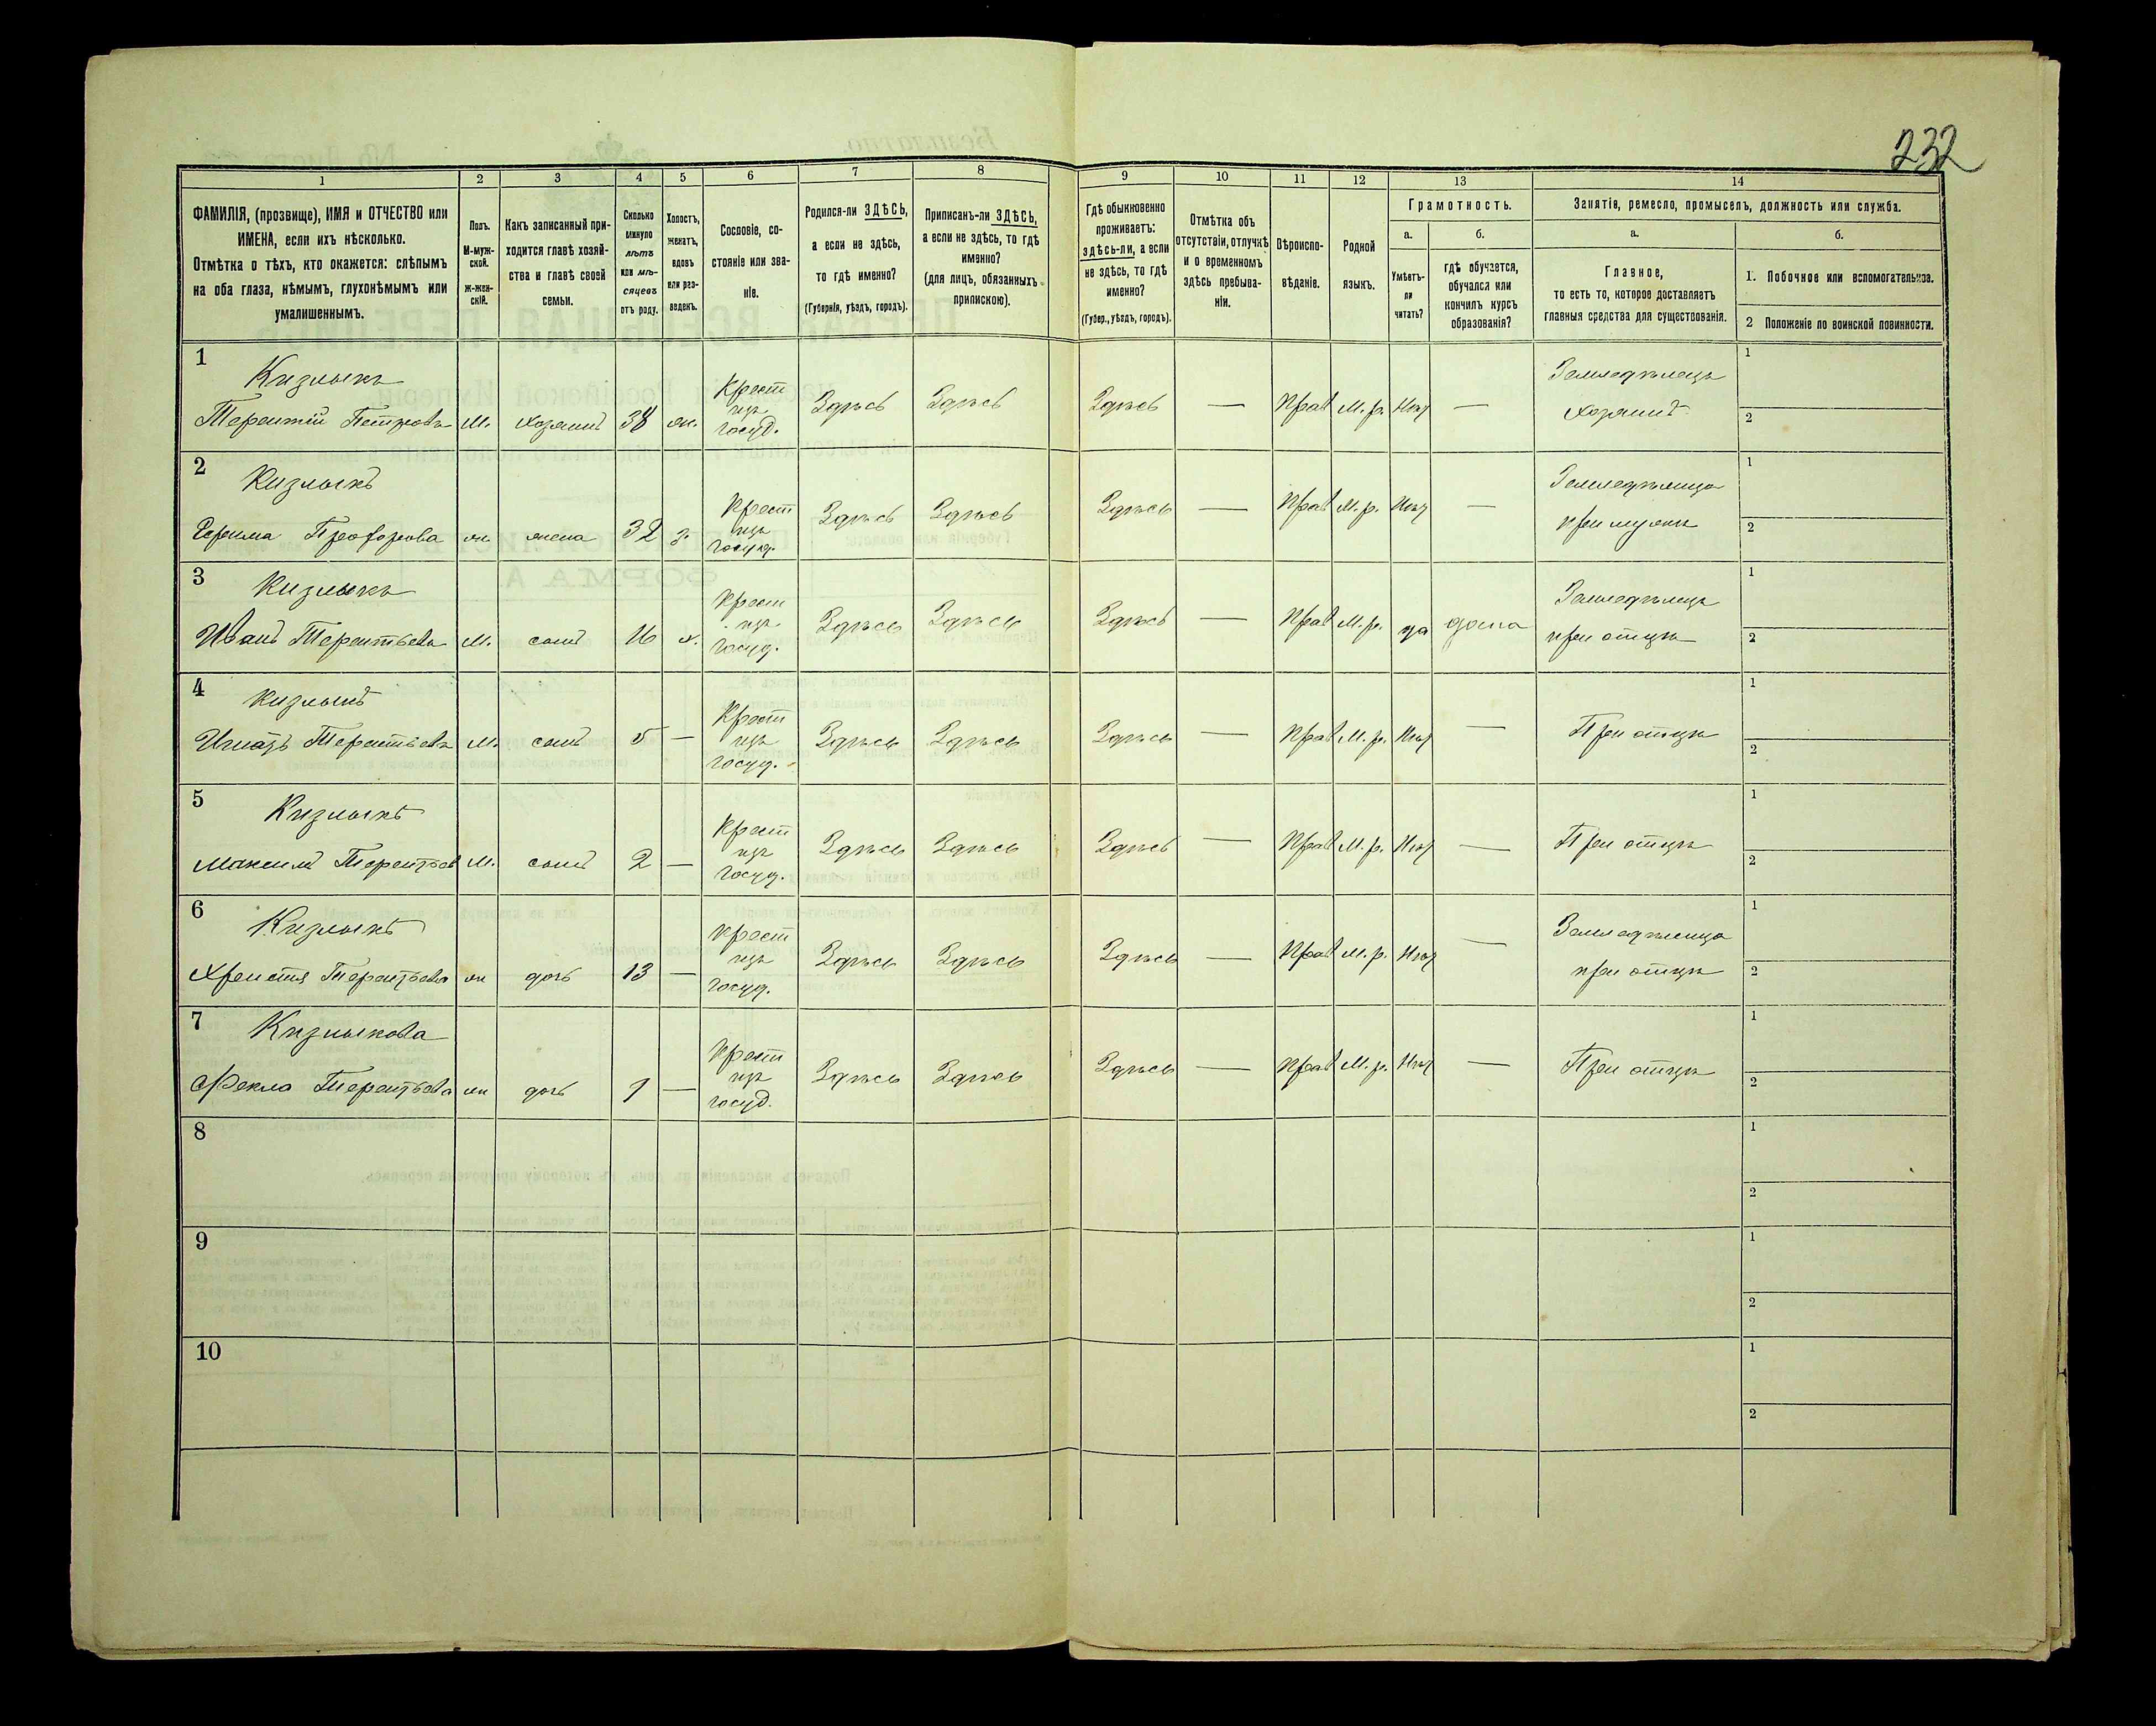 232
1 2 3 4 5 6 7 8 9 10 11 12 13 14
ФАМИЛІЯ, (прозвище), ИМЯ и ОТЧЕСТВО или
ИМЕНА, если ихъ нѣсколько.
Отмѣтка о тѣхъ, кто окажется: слѣпымъ
на оба глаза, нѣмымъ, глухонѣмымъ или
умалишеннымъ.
Полъ.
М-муж-
ской.
Ж-жен-
скій.
Какъ записанный при-
ходится главѣ хозяй-
ства и главѣ своей
семьи.
Сколько
минуло
лѣтъ
или мѣ-
сяцевъ
отъ роду.
Холостъ,
женатъ,
вдовъ
или раз-
веденъ.
Сословіе, со-
стояніе или зва-
ніе.
Родился-ли ЗДѢСЬ,
а если не здѣсь,
то гдѣ именно?
(Губернія, уѣздъ, городъ).
Приписанъ-ли ЗДѢСЬ,
а если не здѣсь, то гдѣ
именно?
(для лицъ, обязанныхъ
припискою).
Гдѣ обыкновенно
проживаетъ:
здѣсь-ли, а если
не здѣсь, то гдѣ
именно?
(Губер., уѣздъ, городъ).
Отмѣтка объ
отсутствіи, отлучкѣ
и о временномъ
здѣсь пребыва-
ніи.
Вѣроиспо-
вѣданіе.
Родной
языкъ.
Грамотность.
а.
Умѣетъ-
ли
читать?
б.
гдѣ обучается,
обучался или
кончилъ курсъ
образованія?
Занятіе, ремесло, промыселъ, должность или служба.
а.
Главное,
то есть то, которое доставляетъ
главныя средства для существованія.
б.
1. Побочное или вспомогательное.
2 Положеніе по воинской повинности.
1
Кизлыкъ
Терентій Петровъ М. хозяинъ 38 ж. Крест изъ госуд. Здѣсь Здѣсь Здѣсь — Прав М. р. Нѣт — Земледѣлецъ хозяинъ
1
2
2
Кизлыкъ
Прохорова ж жена 32 з. Крест изъ госуд. Здѣсь Здѣсь Здѣсь — Прав М. р. Нѣт — Земледѣлица при мужѣ
1
2
3
Кизлыкъ
Иванъ Терентьевъ М. сынъ 16 х. Крест изъ госуд. Здѣсь Здѣсь Здѣсь — Прав М. р. да дома Земледѣлецъ при отцѣ
1
2
4
Кизлыкъ
Игнатъ Терентьевъ М. сынъ 5 — Крест изъ госуд. Здѣсь Здѣсь Здѣсь — Прав М. р. Нѣт — При отцѣ
1
2
5
Кизлыкъ
Максимъ Терентьев М. сынъ 2 — Крест изъ госуд. Здѣсь Здѣсь Здѣсь — Прав М. р. Нѣт — При отцѣ
1
2
6
Кизлыкъ
Христя Терентьева ж дочь 13 — Крест изъ госуд. Здѣсь Здѣсь Здѣсь — Прав М. р. Нѣт — Земледѣлица при отцѣ
1
2
7
Кизлыкова
Фекла Терентьева ж дочь 1 — Крест изъ госуд. Здѣсь Здѣсь Здѣсь — Прав М. р. Нѣт — При отцѣ
1
2
8
1
2
9
1
2
10
1
2